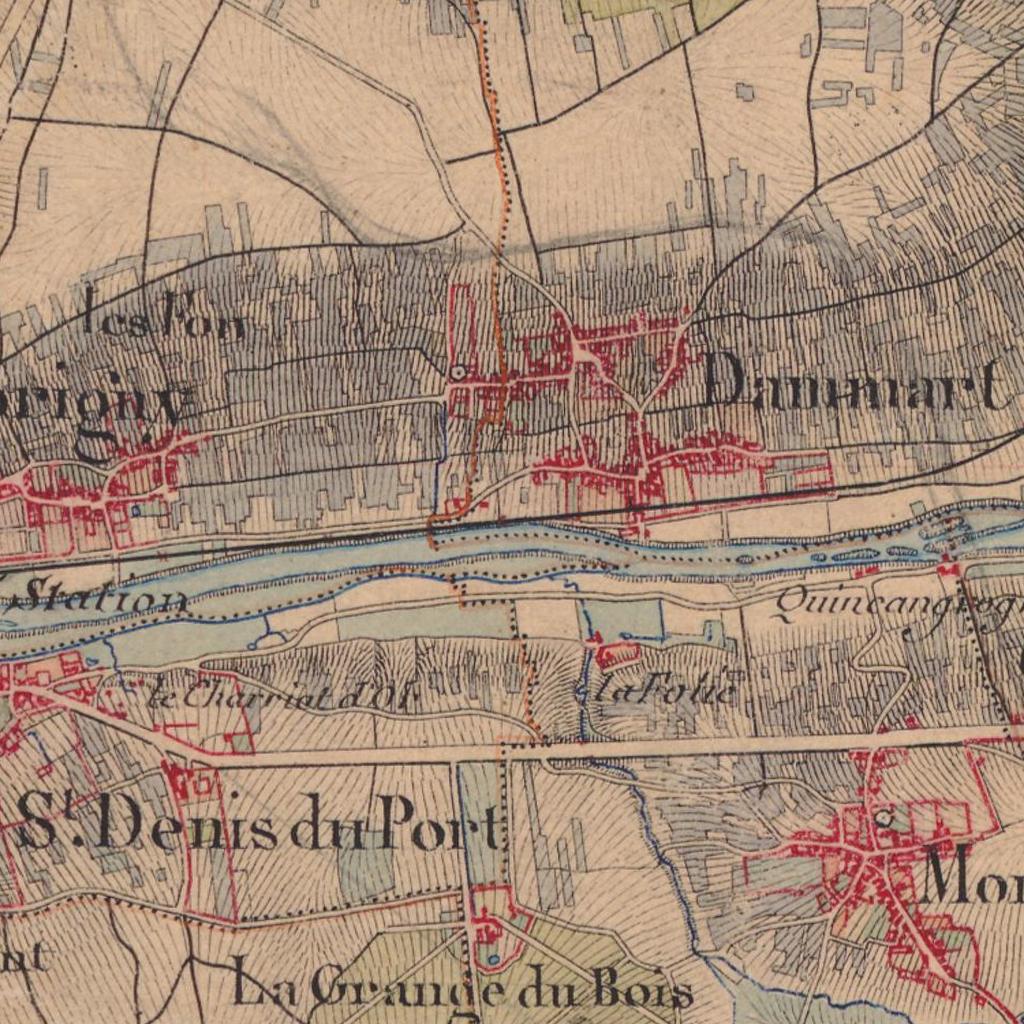 les Pon
origny
Dammart
Station
Quincangrogn
le Charriot d'Or
la Folie
St. Denis du Port
Mon
nt
La Grange du Bois